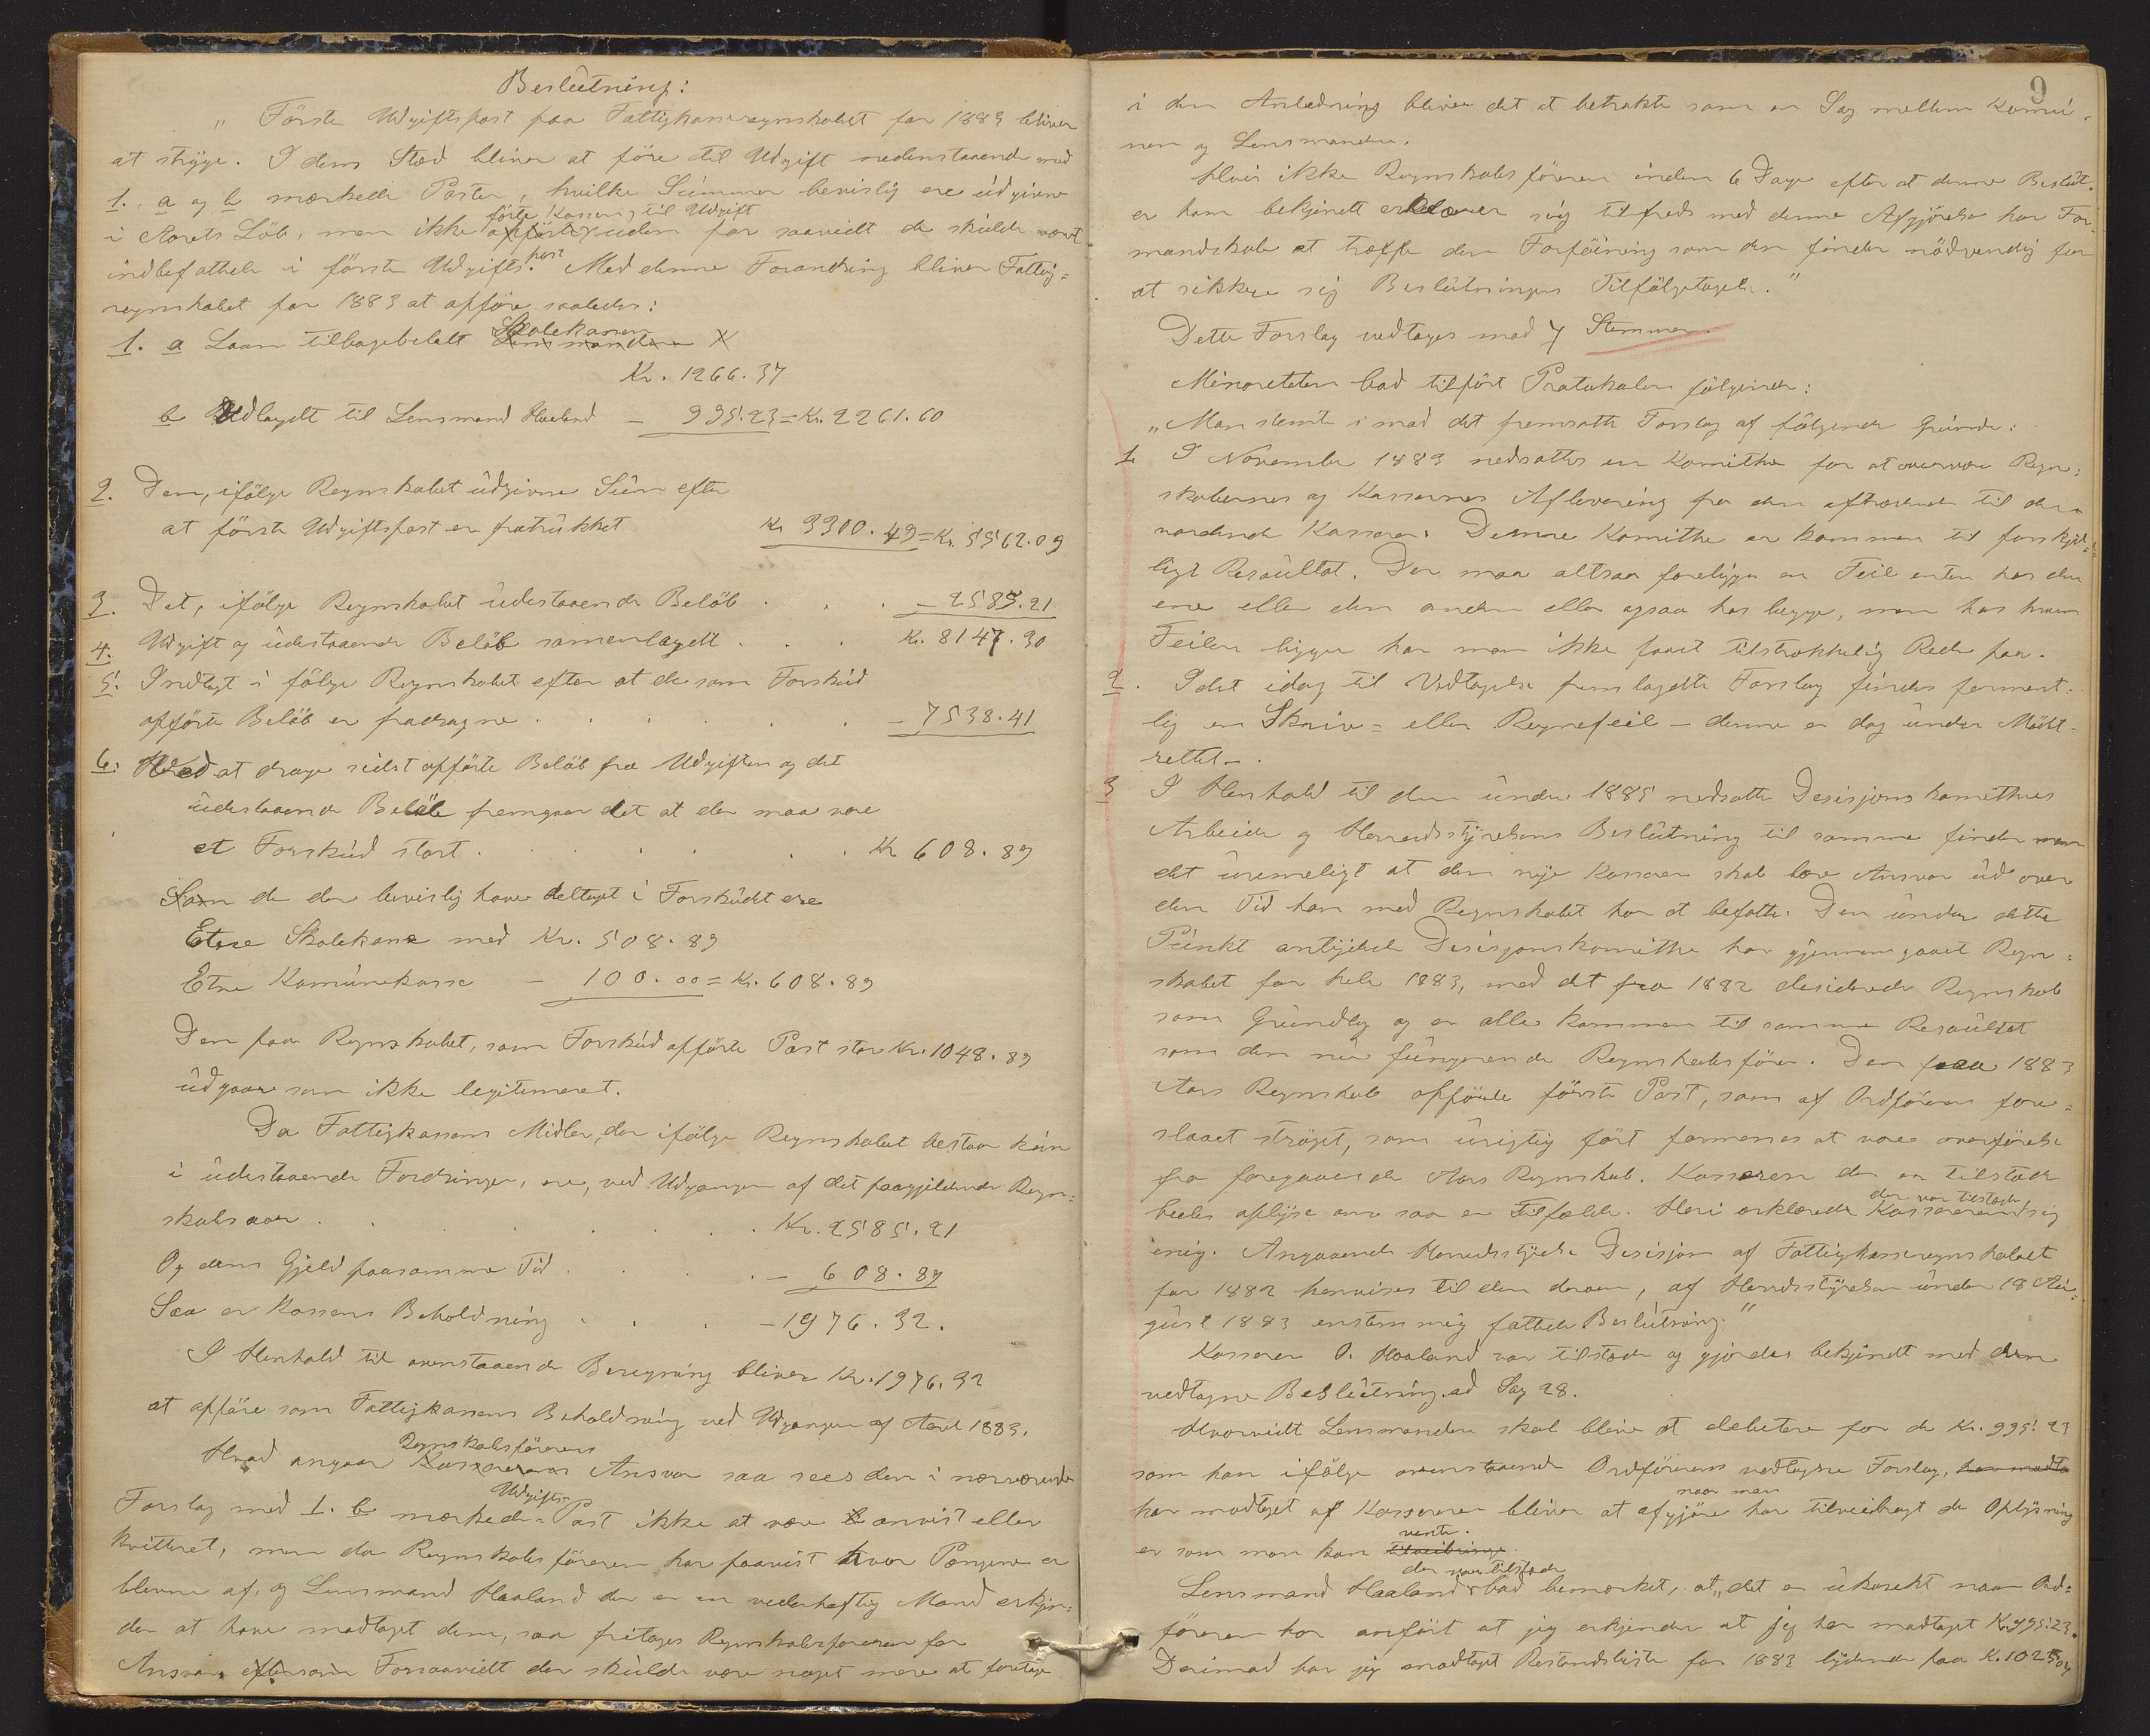 Beslutning:
„Förste Udgiftspost paa Fattigkasseregnskabet for 1883 bliver
at stryge. I dens Sted bliver at före til Udgift nedenstaaende med
1. a og b mærkede Poster, hvilke Summer bevislig ere udgivne
förte Kasseren til Udgift
i Aarets Löb, men ikke opförte uden for saavidt de skulde været
indbefattede i förste Udgiftspost. Med denne Forandring bliver Fattig=
regnskabet for 1883 at opföre saaledes:
1. a Laan tilbagebetalt Skolekassen Lensmanden
Kr. 1266.37
b Udlagdt til Lensmand Haaland – 995.23 = Kr. 2261.60
2. Den, ifölge Regnskabet udgivne Sum efter
at förste Udgiftspost er fratrukket Kr 3300.49 = Kr. 5562.09
3. Det, ifölge Regnskabet udestaaende Belöb . . . – 2585.21
4. Udgift og udestaaende Belöb samenlagdt . . . Kr. 8147.30
5. Indtægt i fölge Regnskabet efter at de som Forskud
opförte Belöb er fradragne . . . . . – 7538.41
6. Ved at drage sidst opförte Belöb fra Udgiften og det
udestaaende Belöb fremgaar det at der maa være
et Forskud stort . . . . . Kr 608.89
Som de der bevislig have deltaget i Forskudet ere
Etne Skolekasse med Kr. 508.89
Etne Komunekasse – 100.00 = Kr. 608.89
Den paa Regnskabet, som Forskud opförte Post stor Kr. 1048.89
udgaar som ikke legitimeret.
Da Fattigkassens Midler, der ifölge Regnskabet bestaar kun
i udestaaende Fordringer, ere, ved Udgangen af det paagjeldende Regn=
skabsaar . . . . . Kr. 2585.21
Og dens Gjeld paasamme Tid . . . – 608.89
Saa er Kassens Beholdning . . . – 1976.32.
I Henhold til ovenstaaende Beregning bliver Kr. 1976.32
at opföre som Fattigkassens Beholdning ved Udgangen af Aaret 1883.
Regnskabsförerens
Hvad angaar Kassererens Ansvar saa sees den i nærværende
Udgifts=
Forslag med 1. b mærkede Post ikke at være anvist eller
kvitteret, men da Regnskabsföreren har paavist hvor Pengene er
blevne af, og Lensmand Haaland der er en vederheftig Mand erkjen=
der at have modtaget dem, saa fritages Regnskabsföreren for
Ansvar eftersom Forsaavidt der skulde være noget mere at foretage
9
i den Anledning bliver det at betrakte som en Sag mellem Komu=
nen og Lensmanden.
Hvis ikke Regnskabsföreren inden 6 Dage efter at denne Beslut.
er ham bekjendt erklærer sig tilfreds med denne Afgjörelse har For=
mandskabet at træffe den Forföining som den finder nödvendig for
at sikkre sig Beslutningens Tilfölgetagelse."
Dette Forslag vedtages med 7 Stemmer.
Minoriteten bad tilfört Protokolen fölgende:
„Man stemte imod det fremsatte Forslag af fölgende Grunde:
1. I November 1883 nedsattes en Komithe for at overvære Regn=
skabernes og Kassernes Aflevering fra den aftrædende til den
vordende Kasserer. Denne Komithe er kommen til forskjel=
ligt Resultat. Der maa altsaa foreligge en Feil enten hos den
ene eller den anden eller ogsaa hos begge, men hos hvem
Feilen ligger har man ikke faaet tilstrekkelig Rede paa.
2. I det idag til Vedtagelse fremlagdte Forslag findes forment=
lig en Skrive= eller Regnefeil – denne er dog under Mödet
rettet –.
3 I Henhold til den under 1885 nedsatte Desisjonskomithees
Arbeide og Herredsstyrelsens Beslutning til samme finder man
det urimeligt at den nye Kasserer skal bære Ansvar ud over
den Tid han med Regnskabet har at befatte. Den under dette
Punkt antydede Desisjonskomithe har gjennemgaaet Regn=
skabet for hele 1883, med det fra 1882 desiderede Regnskab
som Grundlag og er alle kommen til samme Resultat
som den nu fungerende Regnskabsförer. Den paa 1883
Aars Regnskab opförte förste Post, som af Ordföreren fore=
slaaet ströget, som urigtig fört formenes at være overförelse
fra foregaaende Aars Regnskab. Kasseren der er tilstede
der var tilstede
bedes oplyse om saa er Tilfælde. Heri erklærede Kassereren sig
enig. Angaaende Herredsstyrets Desisjon af Fattigkasseregnskabet
for 1882 henvises til den derom, af Herredsstyrelsen under 18 Au=
gust 1883 enstemmig fattede Beslutning."
Kasserer O. Haaland var tilstede og gjordes bekjendt med den
vedtagne Beslutning ad Sag 28.
Hvorvidt Lensmanden skal blive at debitere for de Kr. 995.23
som han ifölge ovenstaaende Ordförerens vedtagne Forslag, har modta
naar man
har modtaget af Kasserer bliver at afgjöre har tilveiebragt de Oplysning
vente.
er som man kan tilveiebringe.
der var tilstede
Lensmand Haaland bad bemærket, at „det er ukorekt naar Ord=
föreren har anfört at jeg erkjender at jeg har modtaget Kr. 995.23.
Derimod har jeg modtaget Restandsliste for 1883 lydende paa K. 1025.04